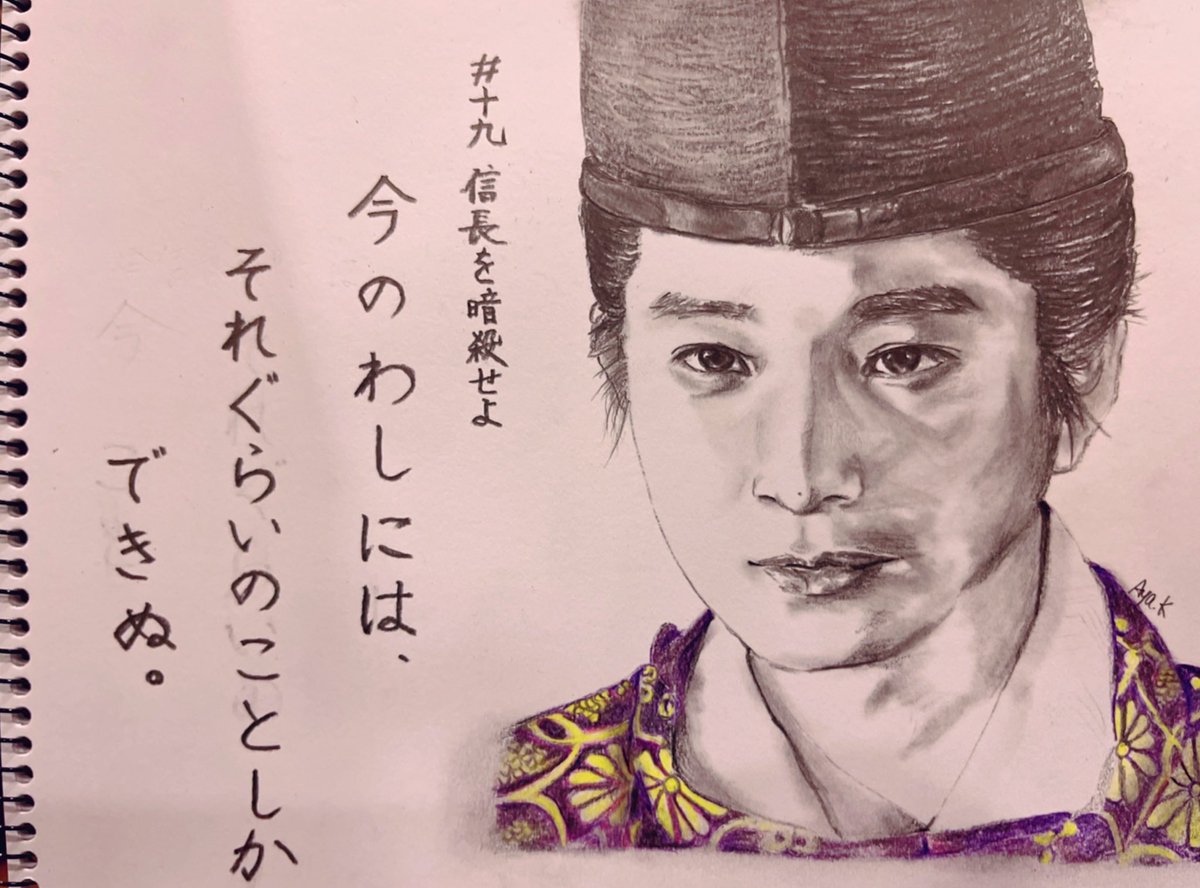 #十九 信長を暗殺せよ
今のわしには、
それぐらいのことしか
できぬ。
Aya.K